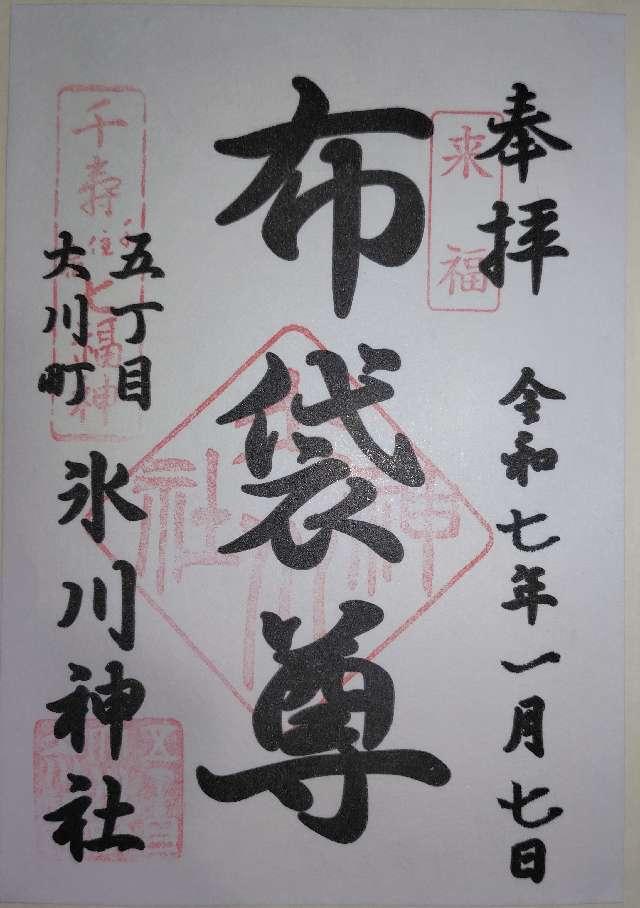 奉拝
来福
令和七年一月七日
布袋尊
氷川神社
千寿七福神
千住
五丁目
大川町
氷川神社